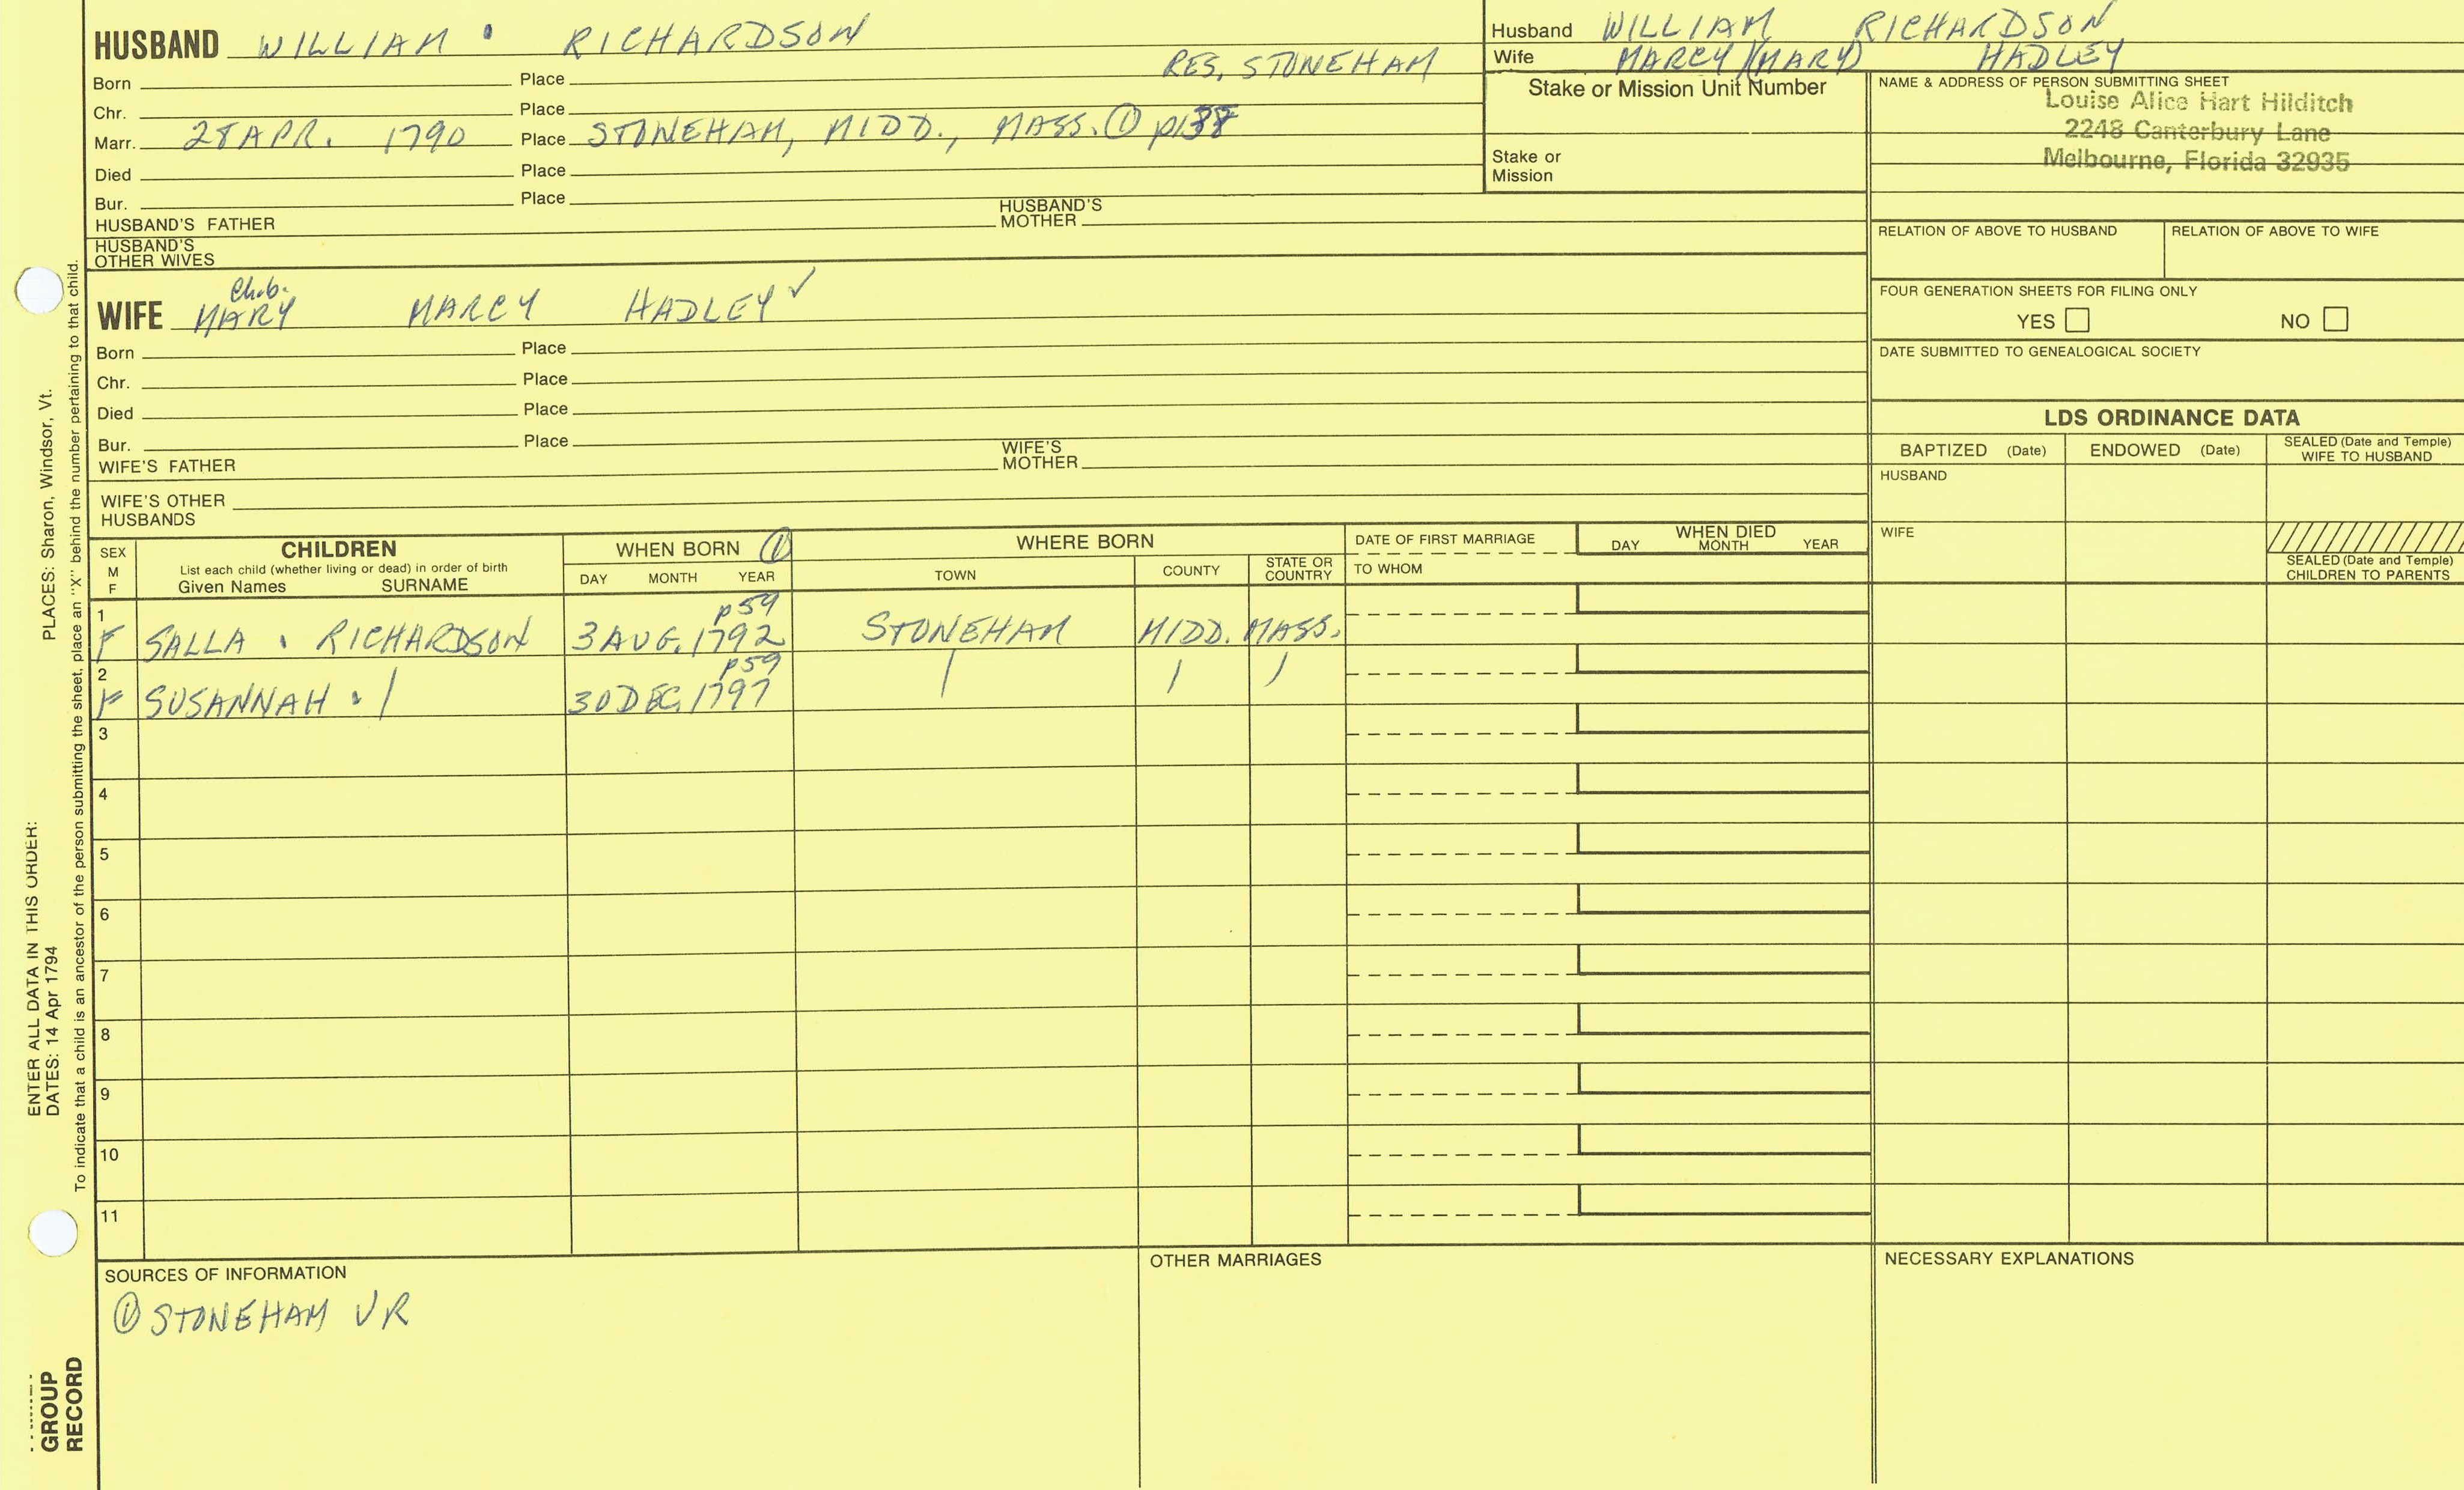 HUSBAND WILLIAM . RICHARDSON
RES. STONEHAM
Born Place
Chr. Place
Marr. 28 APR. 1790 Place STONEHAM, MIDD., MASS. ① p138
Died Place
Bur. Place
HUSBAND'S FATHER HUSBAND'S MOTHER
HUSBAND'S OTHER WIVES
Husband WILLIAM RICHARDSON
Wife MARCY (MARY) HADLEY
Stake or Mission Unit Number
Stake or
Mission
NAME & ADDRESS OF PERSON SUBMITTING SHEET
Louise Alice Hart Hilditch
2248 Canterbury Lane
Melbourne, Florida 32935
RELATION OF ABOVE TO HUSBAND RELATION OF ABOVE TO WIFE
FOUR GENERATION SHEETS FOR FILING ONLY
YES NO
DATE SUBMITTED TO GENEALOGICAL SOCIETY
Ch.b.
WIFE MARY MARCY HADLEY ✓
Born Place
Chr. Place
Died Place
Bur. Place
WIFE'S FATHER WIFE'S MOTHER
WIFE'S OTHER
HUSBANDS
LDS ORDINANCE DATA
BAPTIZED (Date) ENDOWED (Date) SEALED (Date and Temple) WIFE TO HUSBAND
HUSBAND
WIFE
SEALED (Date and Temple)
CHILDREN TO PARENTS
SEX
M
F
CHILDREN
List each child (whether living or dead) in order of birth
Given Names SURNAME
WHEN BORN ①
DAY MONTH YEAR
WHERE BORN
TOWN COUNTY STATE OR COUNTRY
DATE OF FIRST MARRIAGE
TO WHOM
WHEN DIED
DAY MONTH YEAR
1 p59
F SALLA . RICHARDSON 3 AUG. 1792 STONEHAM MIDD. MASS.
2 p59
F SUSANNAH . / 30 DEC. 1797 / / /
3
4
5
6
7
8
9
10
11
SOURCES OF INFORMATION
① STONEHAM VR
OTHER MARRIAGES
NECESSARY EXPLANATIONS
ENTER ALL DATA IN THIS ORDER:
DATES: 14 Apr 1794 PLACES: Sharon, Windsor, Vt.
To indicate that a child is an ancestor of the person submitting the sheet, place an "X" behind the number pertaining to that child.
GROUP
RECORD